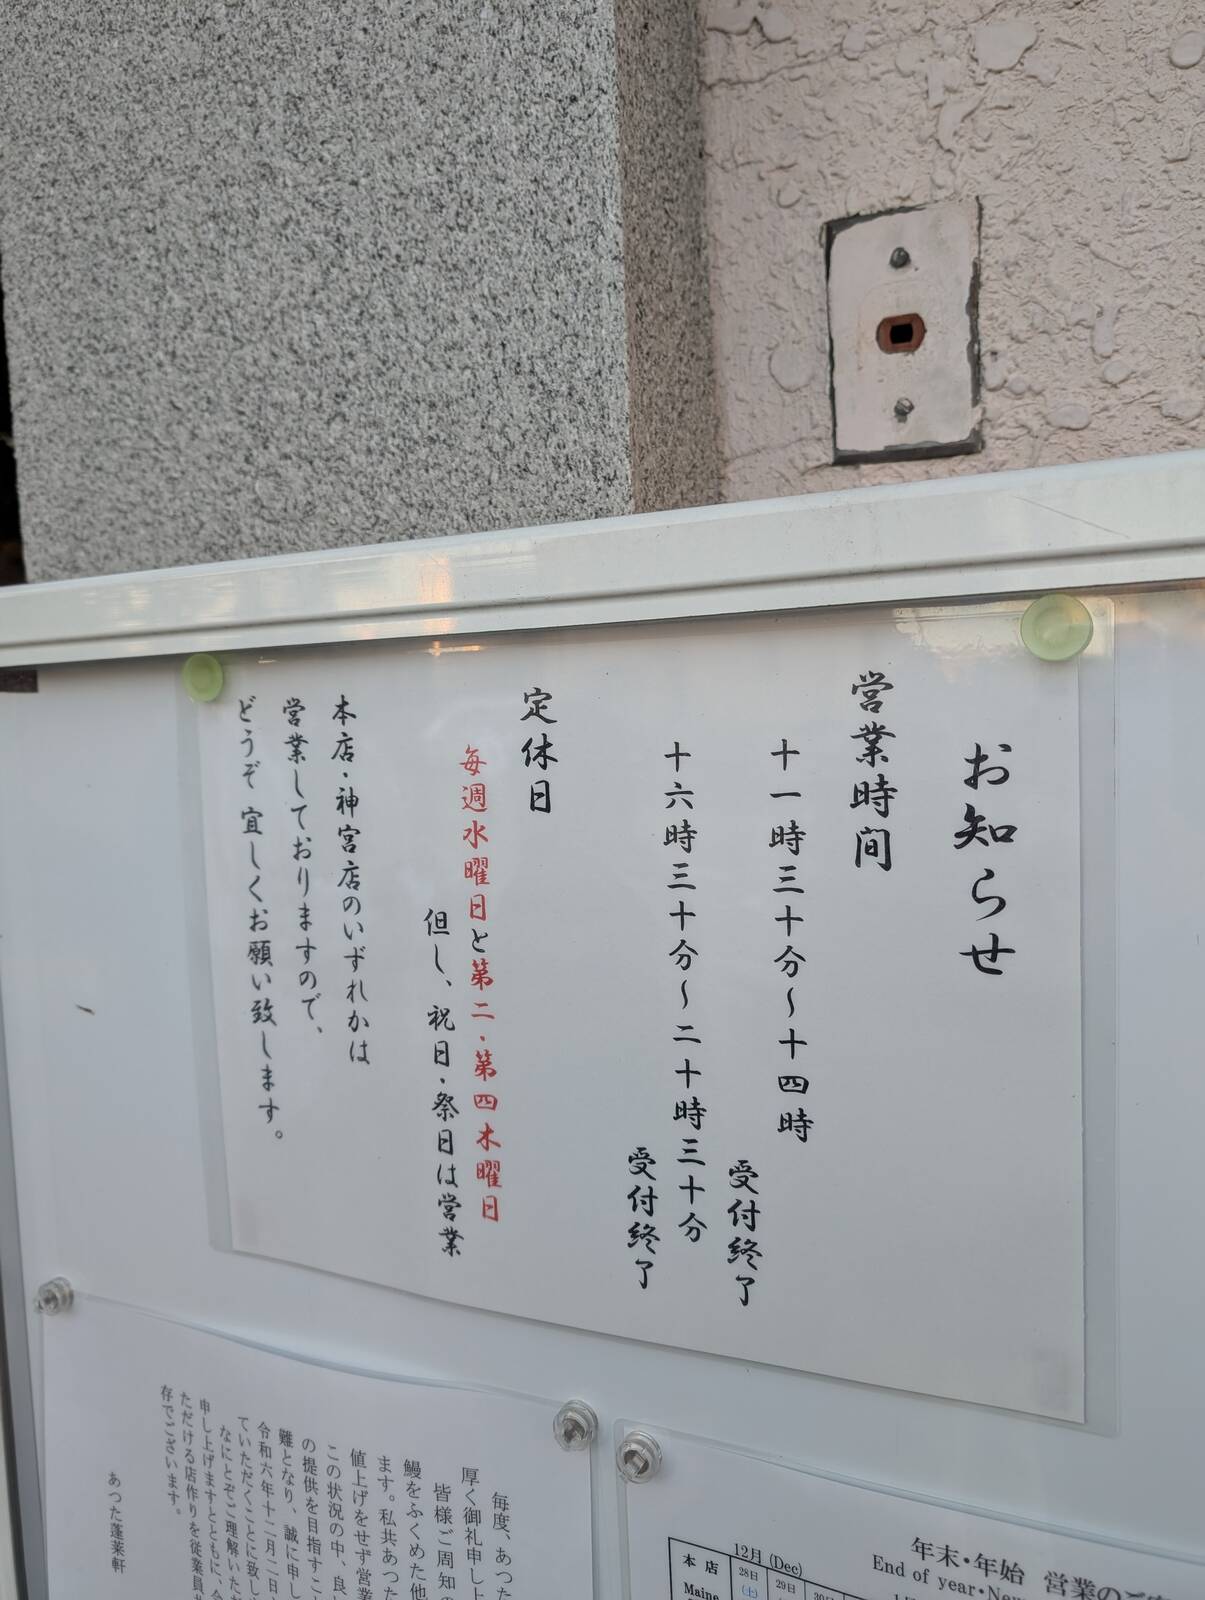 お知らせ
営業時間
十一時三十分～十四時
受付終了
十六時三十分～二十時三十分
受付終了
定休日
毎週水曜日と第二・第四木曜日
但し、祝日・祭日は営業
本店・神宮店のいずれかは
営業しておりますので、
どうぞ宜しくお願い致します。
毎度、あった
厚く御礼申し上
皆様ご周知の
鰻をふくめた他
ます。私共あった
値上げをせず営業
この状況の中、良い
の提供を目指すこと
難となり、誠に申し
令和六年十二月二日
ていただくことに致し
なにとぞご理解いただ
申し上げますとともに、
ただける店作りを従業員
存でございます。
あつた蓬莱軒
年末・年始 営業のご案
End of year・New
12月 (Dec)
本店
Maine
28日
(土)
29日
30日